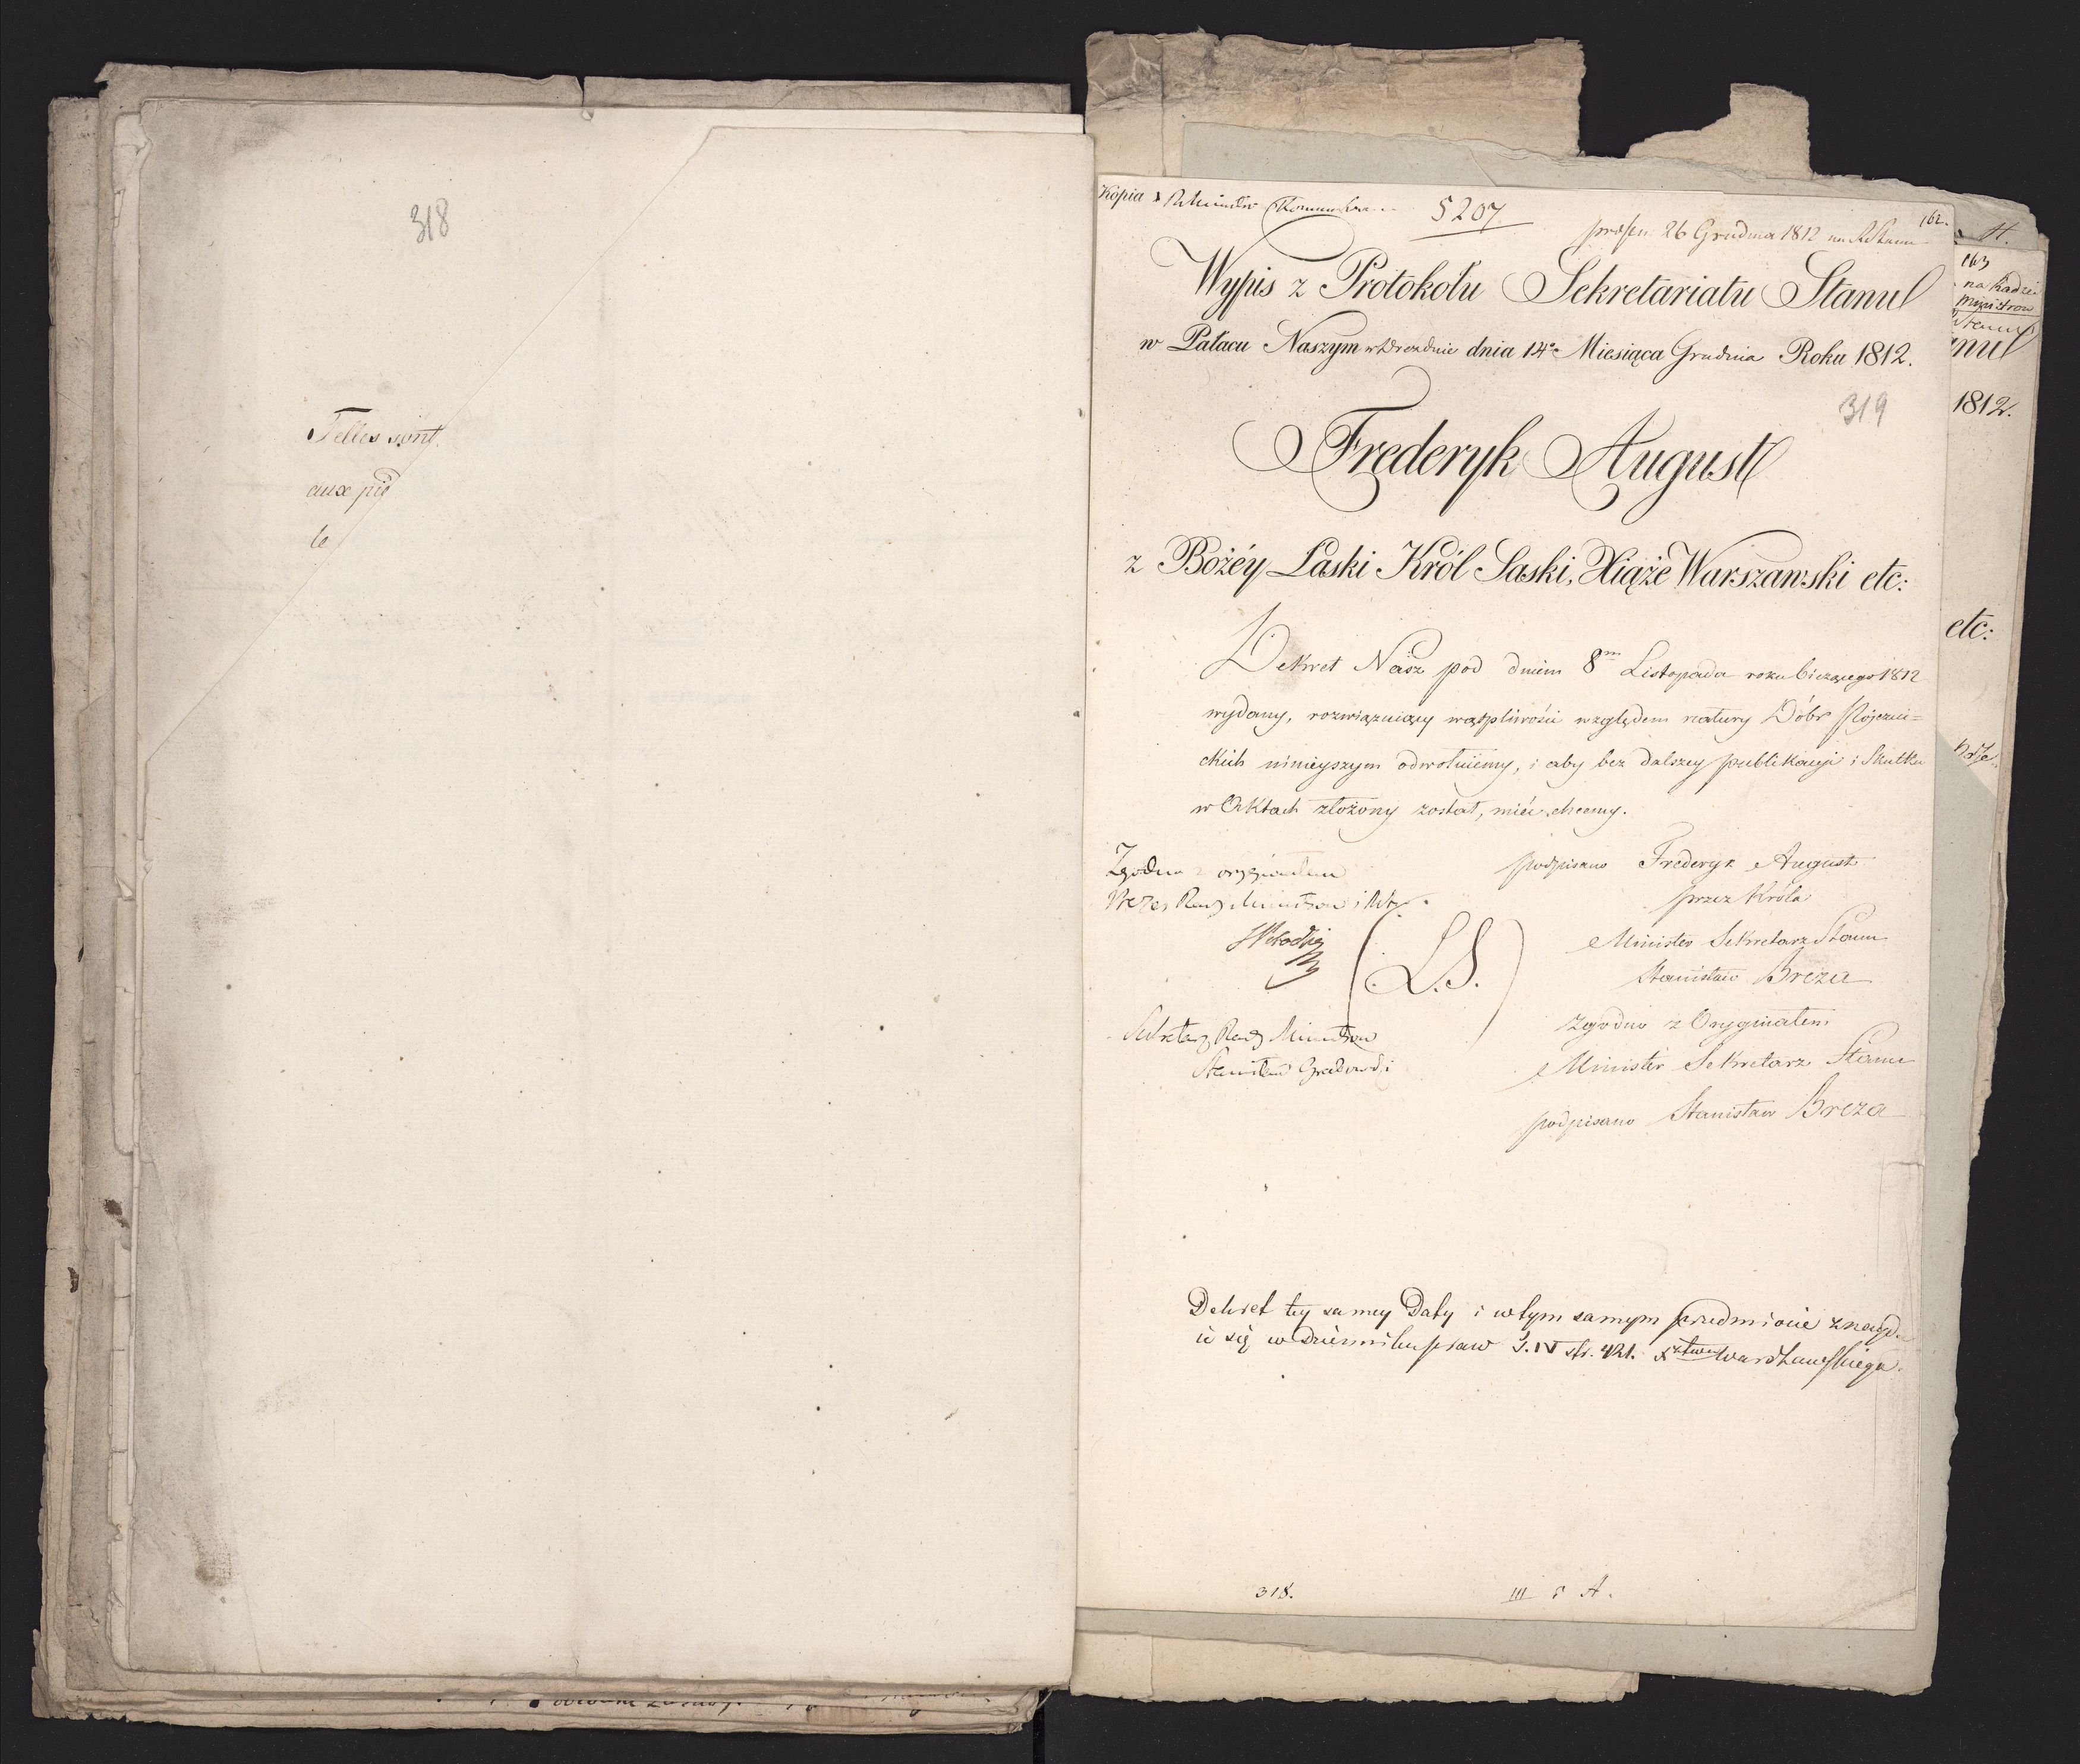 318
Telles sont
aux pie
le
Kopia
5207
162.
26 Grudnia 1812 na
Wypis z Protokołu Sekretariatu Stanu
w Pałacu Naszym w Dreznie dnia 14o Miesiąca Grudnia Roku 1812.
319
Frederyk August
z Bożéy Łaski Król Saski, Xiąże Warszawski etc:
Dekret Nasz pod dniem 8m Listopada roku bieżącego 1812
wydany, rozwiązuiący wątpliwości względem natury Dóbr
ckich ninieyszym odwołuiemy, i aby bez dalszey publikacyi i Skutku
w Aktach złożony został, mieć chcemy.
podpisano Frederyk August
przez Króla
Minister Sekretarz Stanu
Stanisław Breza
Zgodno z Oryginałem
Minister Sekretarz Stanu
podpisano Stanisław Breza
Zgodno z oryginałem
Prezes Rady Ministrow i
(L.S.)
Sekretarz Rady Ministrow
Stanisław Grabowski
Dekret tey samey Daty i w tym samym przedmiocie znayd
ie się w dzienniku praw T. IV str. 421. Xztwa Warszawskiego.
318.
III A.
H.
163
na Radzie
Ministrow
Stanu
anu
1812.
etc: